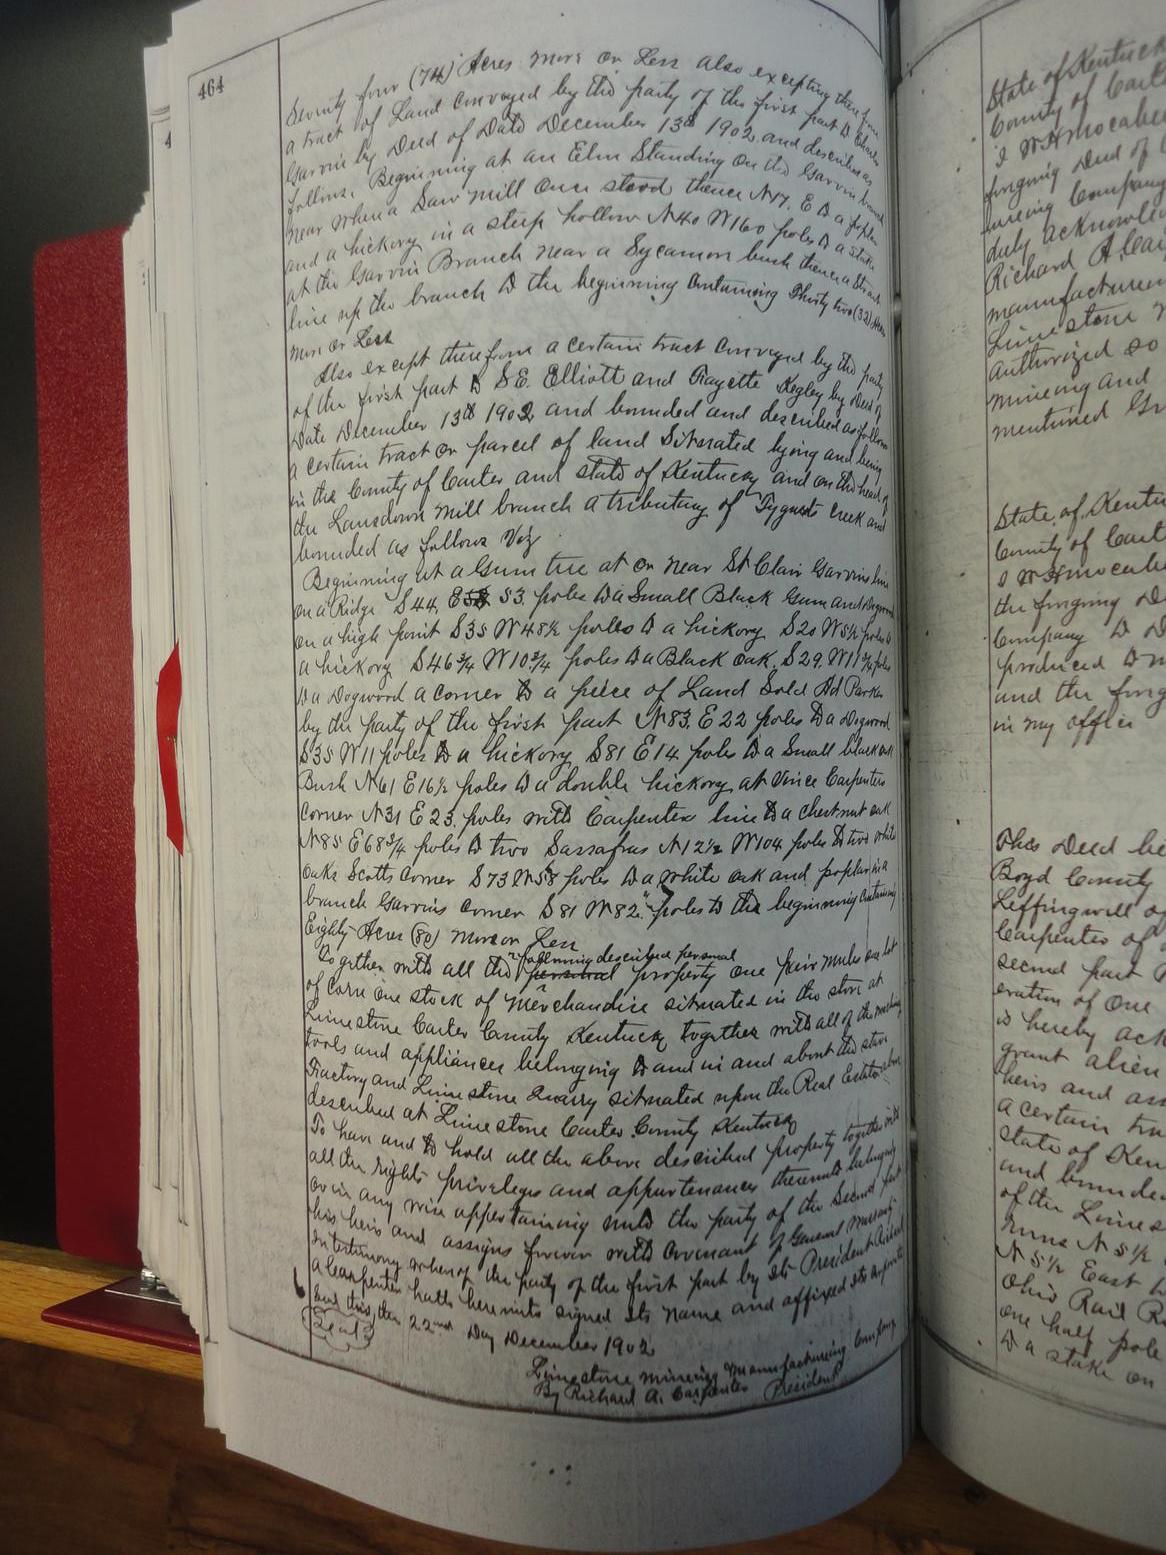 464
Seventy four (74) Acres more or Less also excepting therefrom
a tract of Land Conveyed by the party of the first part to Charles
Garvin by Deed of Date December 13th 1902 and described as
follows. Beginning at an Elm Standing on the Garvin branch
near when a Saw mill once stood thence N17. E to a poplar
and a hickory in a steep hollow N40 W160 poles to a stake
at the Garvin Branch near a Sycamore bush thence a Strait
line up the branch to the beginning Containing Thirty two (32) Acres
more or Less
Also except therefrom a certain tract Conveyed by the party
of the first part to S.E. Elliott and Fayette Kegley by deed of
Date December 13th 1902 and bounded and described as follows
a certain tract or parcel of land Situated lying and being
in the County of Carter and state of Kentucky and on the head of
the Lansdown mill branch a tributary of Tygarts Creek and
bounded as follows Viz
Beginning at a Gum tree at or near St Clair Garvins line
on a Ridge S44. E 53. poles to a Small Black Gum and Dogwood
on a high point S35 W48½ poles to a hickory S20 W5½ poles to
a hickory S46¾ W10¾ poles to a Black oak. S29. W11¾ poles
to a Dogwood a corner to a peice of Land Sold Ad Parker
by the party of the first part N83. E22 poles to a Dogwood
S35 W11 poles to a hickory S81 E14 poles to a Small black oak
Bush N61 E16½ poles to a double hickory at Vince Carpenters
Corner N31 E23. poles with Carpenters line to a chestnut oak
N85 E68¾ poles to two Sassafras N12½ W104 poles to two white
oaks Scotts Corner S73 W58 poles to a white oak and poplar in a
branch Garvins Corner S81 W82 poles to the beginning Containing
Eighty Acres (80) more or Less
Together with all the following described personal property one pair mules one lot
of corn one stock of Merchandise situated in the store at
Limestone Carter County Kentucky together with all of the
tools and appliances belonging to and in and about the
Factory and Limestone Quarry situated upon the Real Estate above
described at Limestone Carter County Kentucky
To have and to hold all the above described property together with
all the rights privileges and appurtenances thereunto belonging
or in any wise appertaining unto the party of the Second part
his heirs and assigns forever with Covenant of General Warranty
In testimony whereof the party of the first part by Its President Richard
A Carpenter hath hereunto signed Its name and affixed Its
seal this the 22nd Day December 1902
Seal
Limestone mining manufacturing Company
By Richard A. Carpenter President
State of Kentucky
County of
I W H
forgoing Deed of
Company
duly acknowle
Richard A. Car
manufacturin
Limestone
authorized so
mining and
mentioned
State of Kentu
County of Cart
I W H
the forgoing De
Company to
produced to m
and the forg
in my office
This Deed be
Boyd County
Leffingwell of
Carpenter of
second part
eration of One
is hereby ack
grant alien
heirs and ass
a certain tra
State of Ken
and bounde
of the Limes
runs N 5½
N 5½ East
Ohio Rail R
one half pole
to a stake on